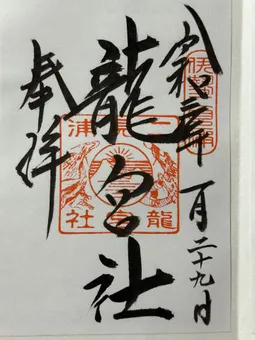 令和
年
月二十九日
龍宮社
奉拝
二見浦
龍宮社